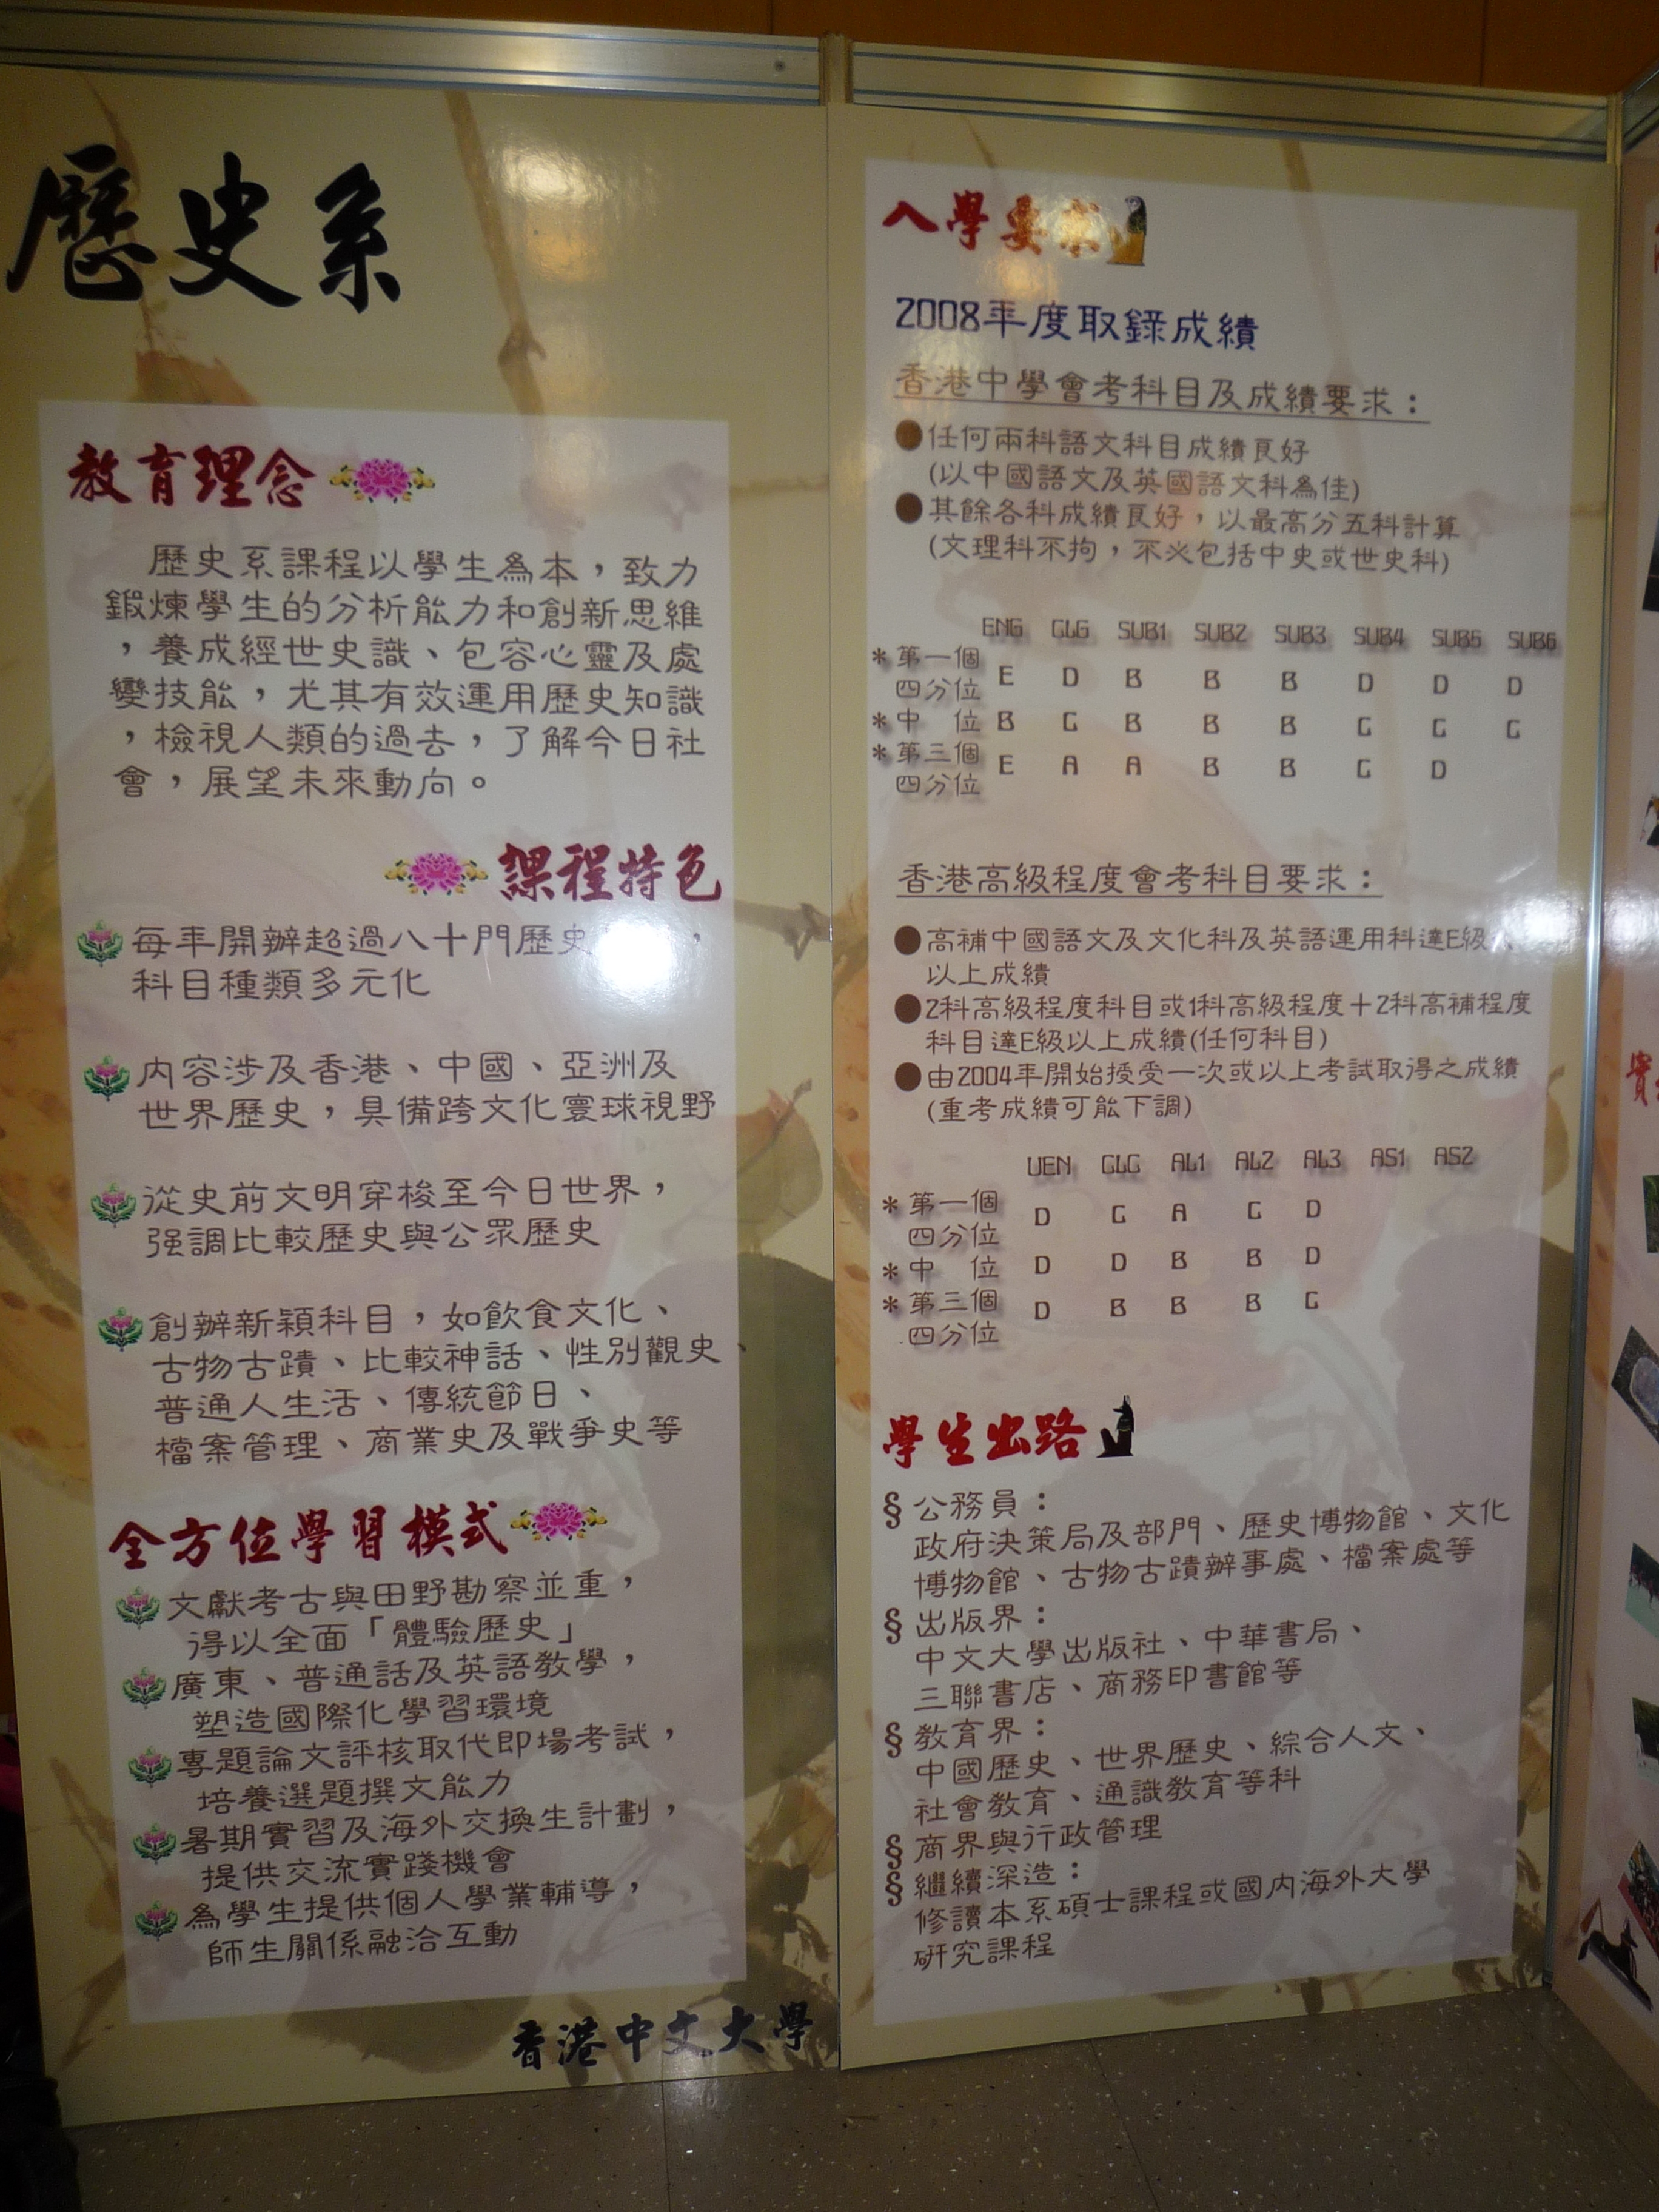 歷史系
教育理念
歷史系課程以學生為本，致力
鍛煉學生的分析能力和創新思維
，養成經世史識、包容心靈及處
變技能，尤其有效運用歷史知識
，檢視人類的過去，了解今日社
會，展望未來動向。
課程特色
每年開辦超過八十門歷史
科目種類多元化
內容涉及香港、中國、亞洲及
世界歷史，具備跨文化寰球視野
從史前文明穿梭至今日世界，
强調比較歷史與公眾歷史
創辦新穎科目，如飲食文化、
古物古蹟、比較神話、性別觀史、
普通人生活、傳統節日、
檔案管理、商業史及戰爭史等
全方位學習模式
文獻考古與田野勘察並重，
得以全面「體驗歷史」
廣東、普通話及英語教學，
塑造國際化學習環境
專題論文評核取代即場考試，
培養選題撰文能力
暑期實習及海外交換生計劃，
提供交流實踐機會
為學生提供個人學業輔導，
師生關係融洽互動
香港中文大學
入學要求
2008年度取錄成績
香港中學會考科目及成績要求：
●任何兩科語文科目成績良好
(以中國語文及英國語文科為佳)
●其餘各科成績良好，以最高分五科計算
(文理科不拘，不必包括中史或世史科)
ENG CLG SUB1 SUB2 SUB3 SUB4 SUB5 SUB6
*第一個
四分位 E D B B B D D D
*中 位 B C B B B C C C
*第三個
四分位 E A A B B C D
香港高級程度會考科目要求：
●高補中國語文及文化科及英語運用科達E級
以上成績
●2科高級程度科目或1科高級程度＋2科高補程度
科目達E級以上成績(任何科目)
●由2004年開始接受一次或以上考試取得之成績
(重考成績可能下調)
UEN CLC AL1 AL2 AL3 AS1 AS2
*第一個
四分位 D C A C D
*中 位 D D B B D
*第三個
四分位 D B B B C
學生出路
§ 公務員：
政府決策局及部門、歷史博物館、文化
博物館、古物古蹟辦事處、檔案處等
§ 出版界：
中文大學出版社、中華書局、
三聯書店、商務印書館等
§ 教育界：
中國歷史、世界歷史、綜合人文、
社會教育、通識教育等科
§ 商界與行政管理
§ 繼續深造：
修讀本系碩士課程或國內海外大學
研究課程